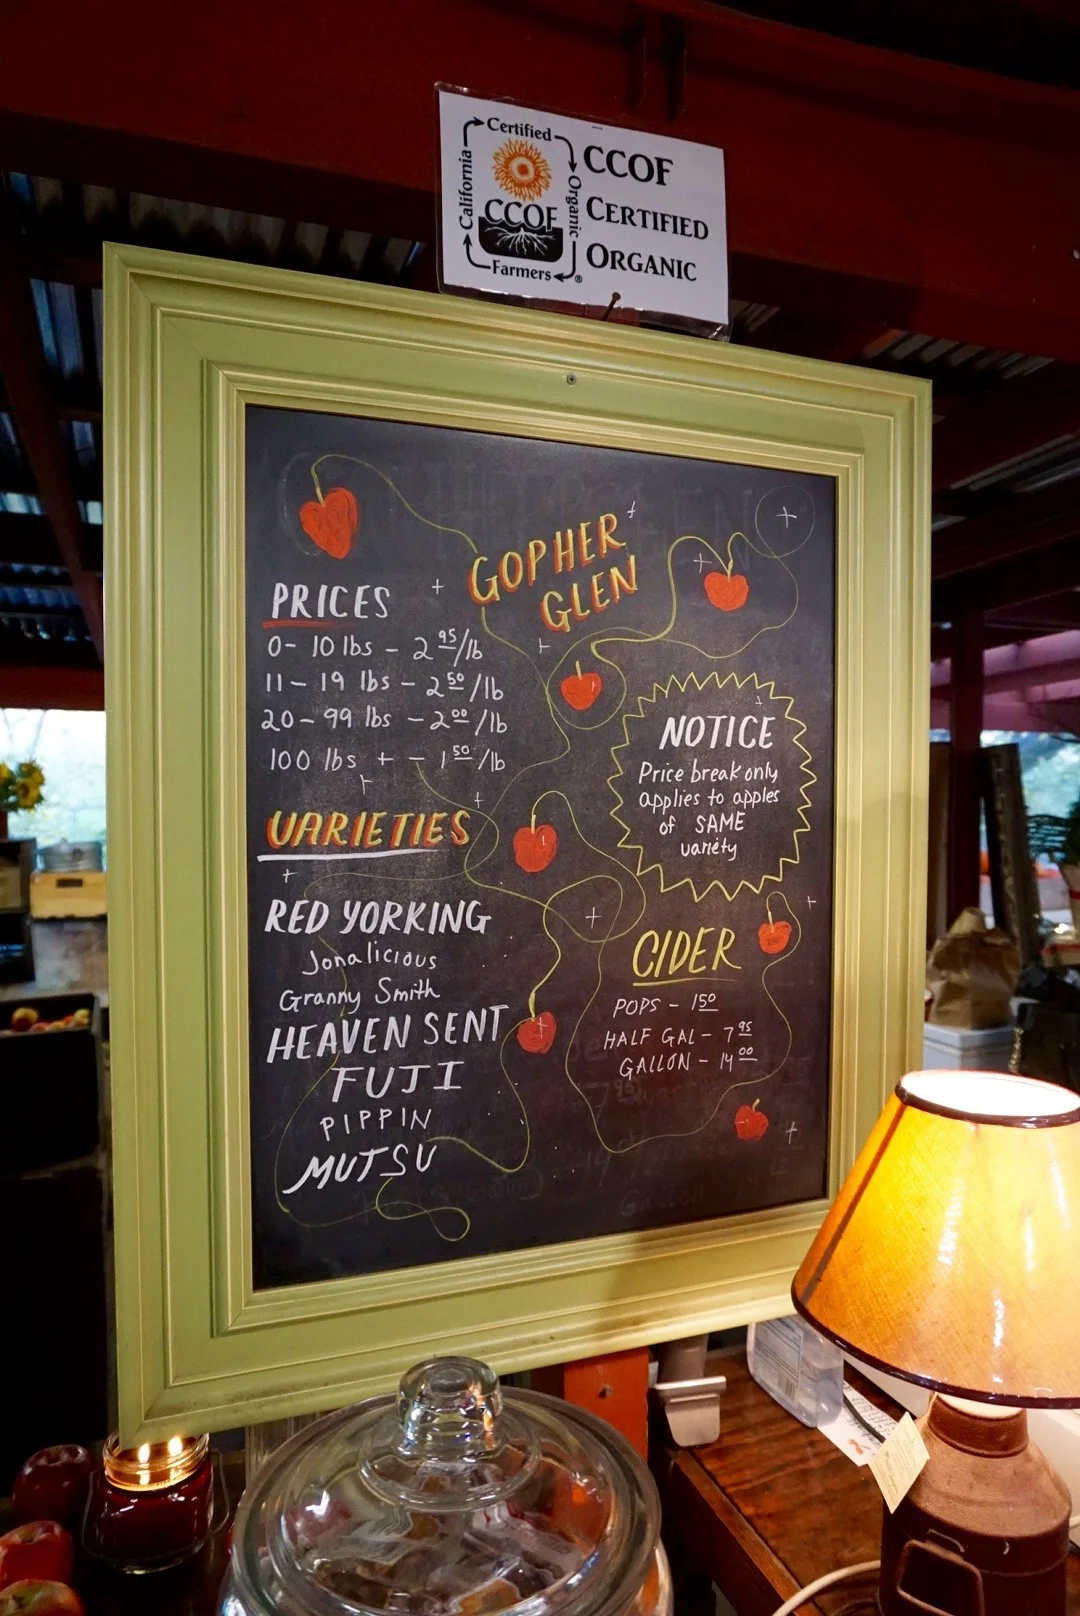 Certified
California
Organic
CCOF
Farmers
®
CCOF
CERTIFIED
ORGANIC
GOPHER
GLEN
PRICES
0- 10 lbs - 2 95/lb
11 - 19 lbs - 2 50/lb
20 - 99 lbs - 2 00/lb
100 lbs + - 1 50/lb
VARIETIES
RED YORKING
Jonalicious
Granny Smith
HEAVEN SENT
FUJI
PIPPIN
MUTSU
NOTICE
Price break only
applies to apples
of SAME
variety
CIDER
POPS - 1 50
HALF GAL - 7 95
GALLON - 14 00